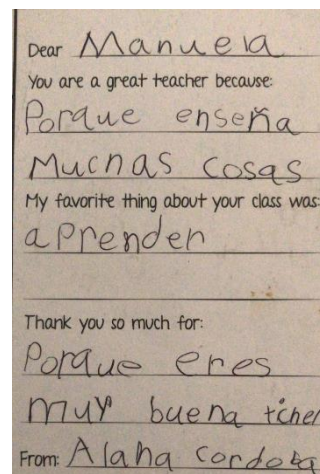 Dear Manuela
You are a great teacher because:
Porque enseña
Muchas cosas
My favorite thing about your class was:
aprender
Thank you so much for:
Porque eres
muy buena ticher
From: Alana cordoba